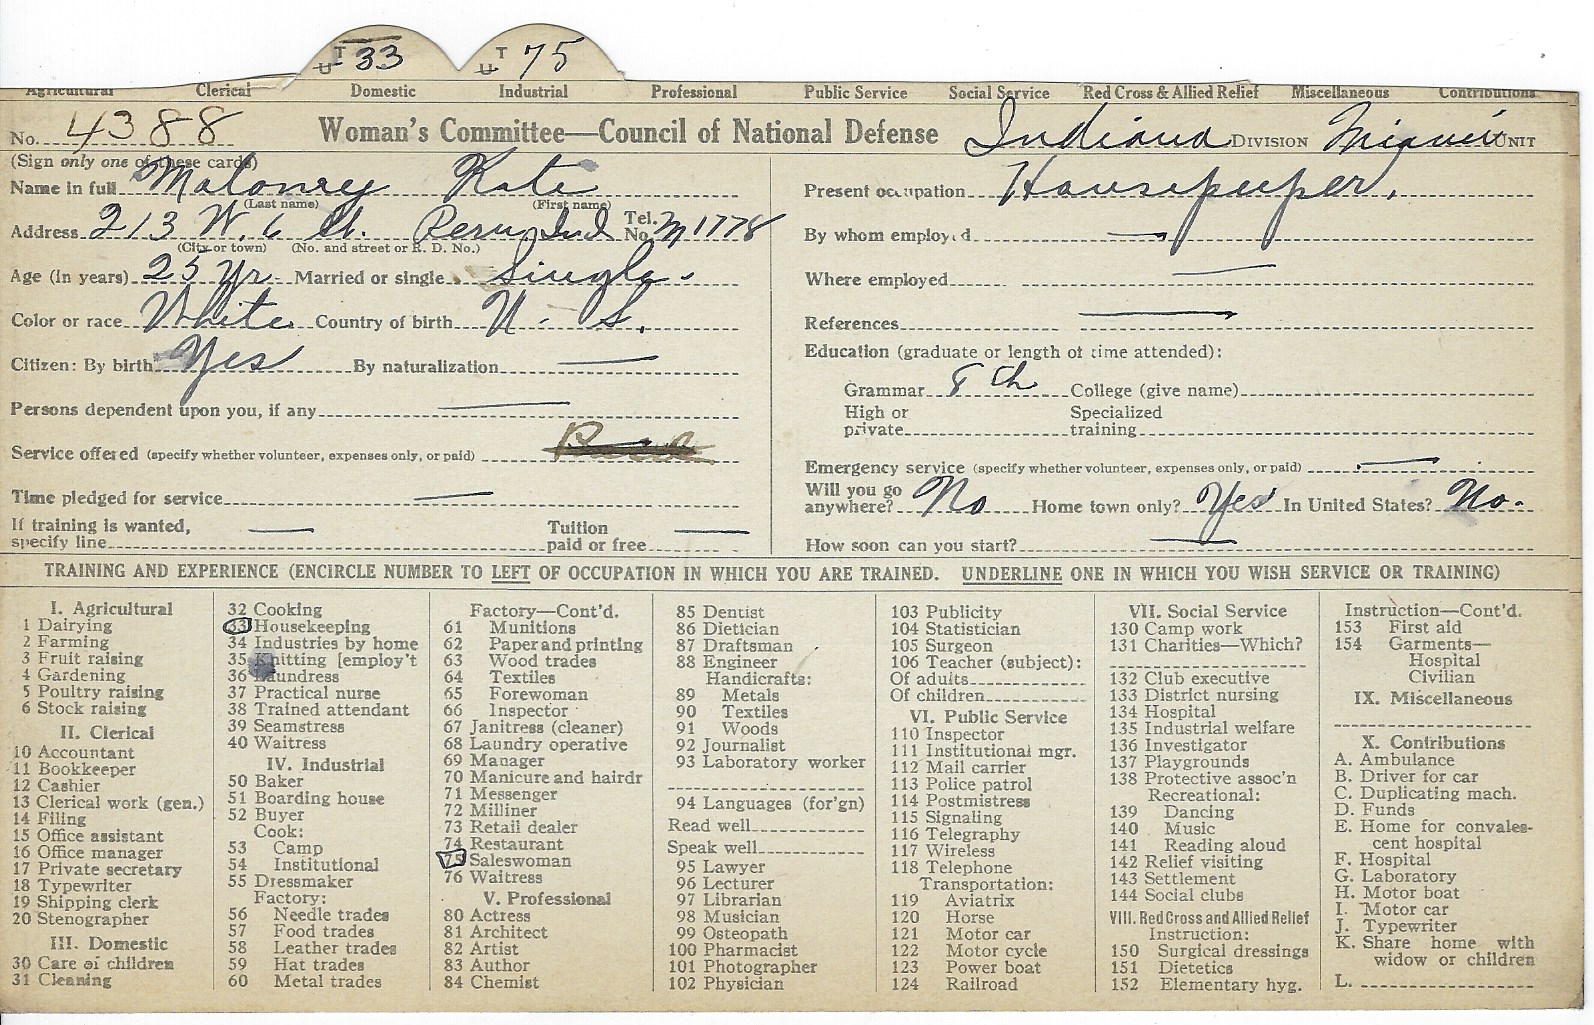 T U 33 T U 75
Agricultural Clerical Domestic Industrial Professional Public Service Social Service Red Cross & Allied Relief Miscellaneous Contributions
No. 4388 Woman's Committee—Council of National Defense Indiana DIVISION Miami UNIT
(Sign only one of these cards)
Name in full Maloney Kate
(Last name) (First name)
Address 213 W. 6 St. Peru Ind Tel. No. M 1778
(City or town) (No. and street or R. D. No.)
Age (in years) 25 Yr. Married or single Single.
Color or race White Country of birth U. S.
Citizen: By birth Yes By naturalization —
Persons dependent upon you, if any —
Service offered (specify whether volunteer, expenses only, or paid)
Time pledged for service —
If training is wanted, specify line — Tuition paid or free —
Present occupation Housekeeper.
By whom employed —
Where employed —
References —
Education (graduate or length of time attended):
Grammar 8th College (give name)
High or private Specialized training
Emergency service (specify whether volunteer, expenses only, or paid) —
Will you go anywhere? No Home town only? Yes In United States? No.
How soon can you start? —
TRAINING AND EXPERIENCE (ENCIRCLE NUMBER TO LEFT OF OCCUPATION IN WHICH YOU ARE TRAINED. UNDERLINE ONE IN WHICH YOU WISH SERVICE OR TRAINING)
I. Agricultural
1 Dairying
2 Farming
3 Fruit raising
4 Gardening
5 Poultry raising
6 Stock raising
II. Clerical
10 Accountant
11 Bookkeeper
12 Cashier
13 Clerical work (gen.)
14 Filing
15 Office assistant
16 Office manager
17 Private secretary
18 Typewriter
19 Shipping clerk
20 Stenographer
III. Domestic
30 Care of children
31 Cleaning
32 Cooking
33 Housekeeping
34 Industries by home
35 Knitting [employ't
36 Laundress
37 Practical nurse
38 Trained attendant
39 Seamstress
40 Waitress
IV. Industrial
50 Baker
51 Boarding house
52 Buyer
Cook:
53 Camp
54 Institutional
55 Dressmaker
Factory:
56 Needle trades
57 Food trades
58 Leather trades
59 Hat trades
60 Metal trades
Factory—Cont'd.
61 Munitions
62 Paper and printing
63 Wood trades
64 Textiles
65 Forewoman
66 Inspector
67 Janitress (cleaner)
68 Laundry operative
69 Manager
70 Manicure and hairdr
71 Messenger
72 Milliner
73 Retail dealer
74 Restaurant
75 Saleswoman
76 Waitress
V. Professional
80 Actress
81 Architect
82 Artist
83 Author
84 Chemist
85 Dentist
86 Dietician
87 Draftsman
88 Engineer
Handicrafts:
89 Metals
90 Textiles
91 Woods
92 Journalist
93 Laboratory worker
94 Languages (for'gn)
Read well
Speak well
95 Lawyer
96 Lecturer
97 Librarian
98 Musician
99 Osteopath
100 Pharmacist
101 Photographer
102 Physician
103 Publicity
104 Statistician
105 Surgeon
106 Teacher (subject):
Of adults
Of children
VI. Public Service
110 Inspector
111 Institutional mgr.
112 Mail carrier
113 Police patrol
114 Postmistress
115 Signaling
116 Telegraphy
117 Wireless
118 Telephone
Transportation:
119 Aviatrix
120 Horse
121 Motor car
122 Motor cycle
123 Power boat
124 Railroad
VII. Social Service
130 Camp work
131 Charities—Which?
132 Club executive
133 District nursing
134 Hospital
135 Industrial welfare
136 Investigator
137 Playgrounds
138 Protective assoc'n
Recreational:
139 Dancing
140 Music
141 Reading aloud
142 Relief visiting
143 Settlement
144 Social clubs
VIII. Red Cross and Allied Relief
Instruction:
150 Surgical dressings
151 Dietetics
152 Elementary hyg.
Instruction—Cont'd.
153 First aid
154 Garments—
Hospital
Civilian
IX. Miscellaneous
X. Contributions
A. Ambulance
B. Driver for car
C. Duplicating mach.
D. Funds
E. Home for convales-
cent hospital
F. Hospital
G. Laboratory
H. Motor boat
I. Motor car
J. Typewriter
K. Share home with
widow or children
L.